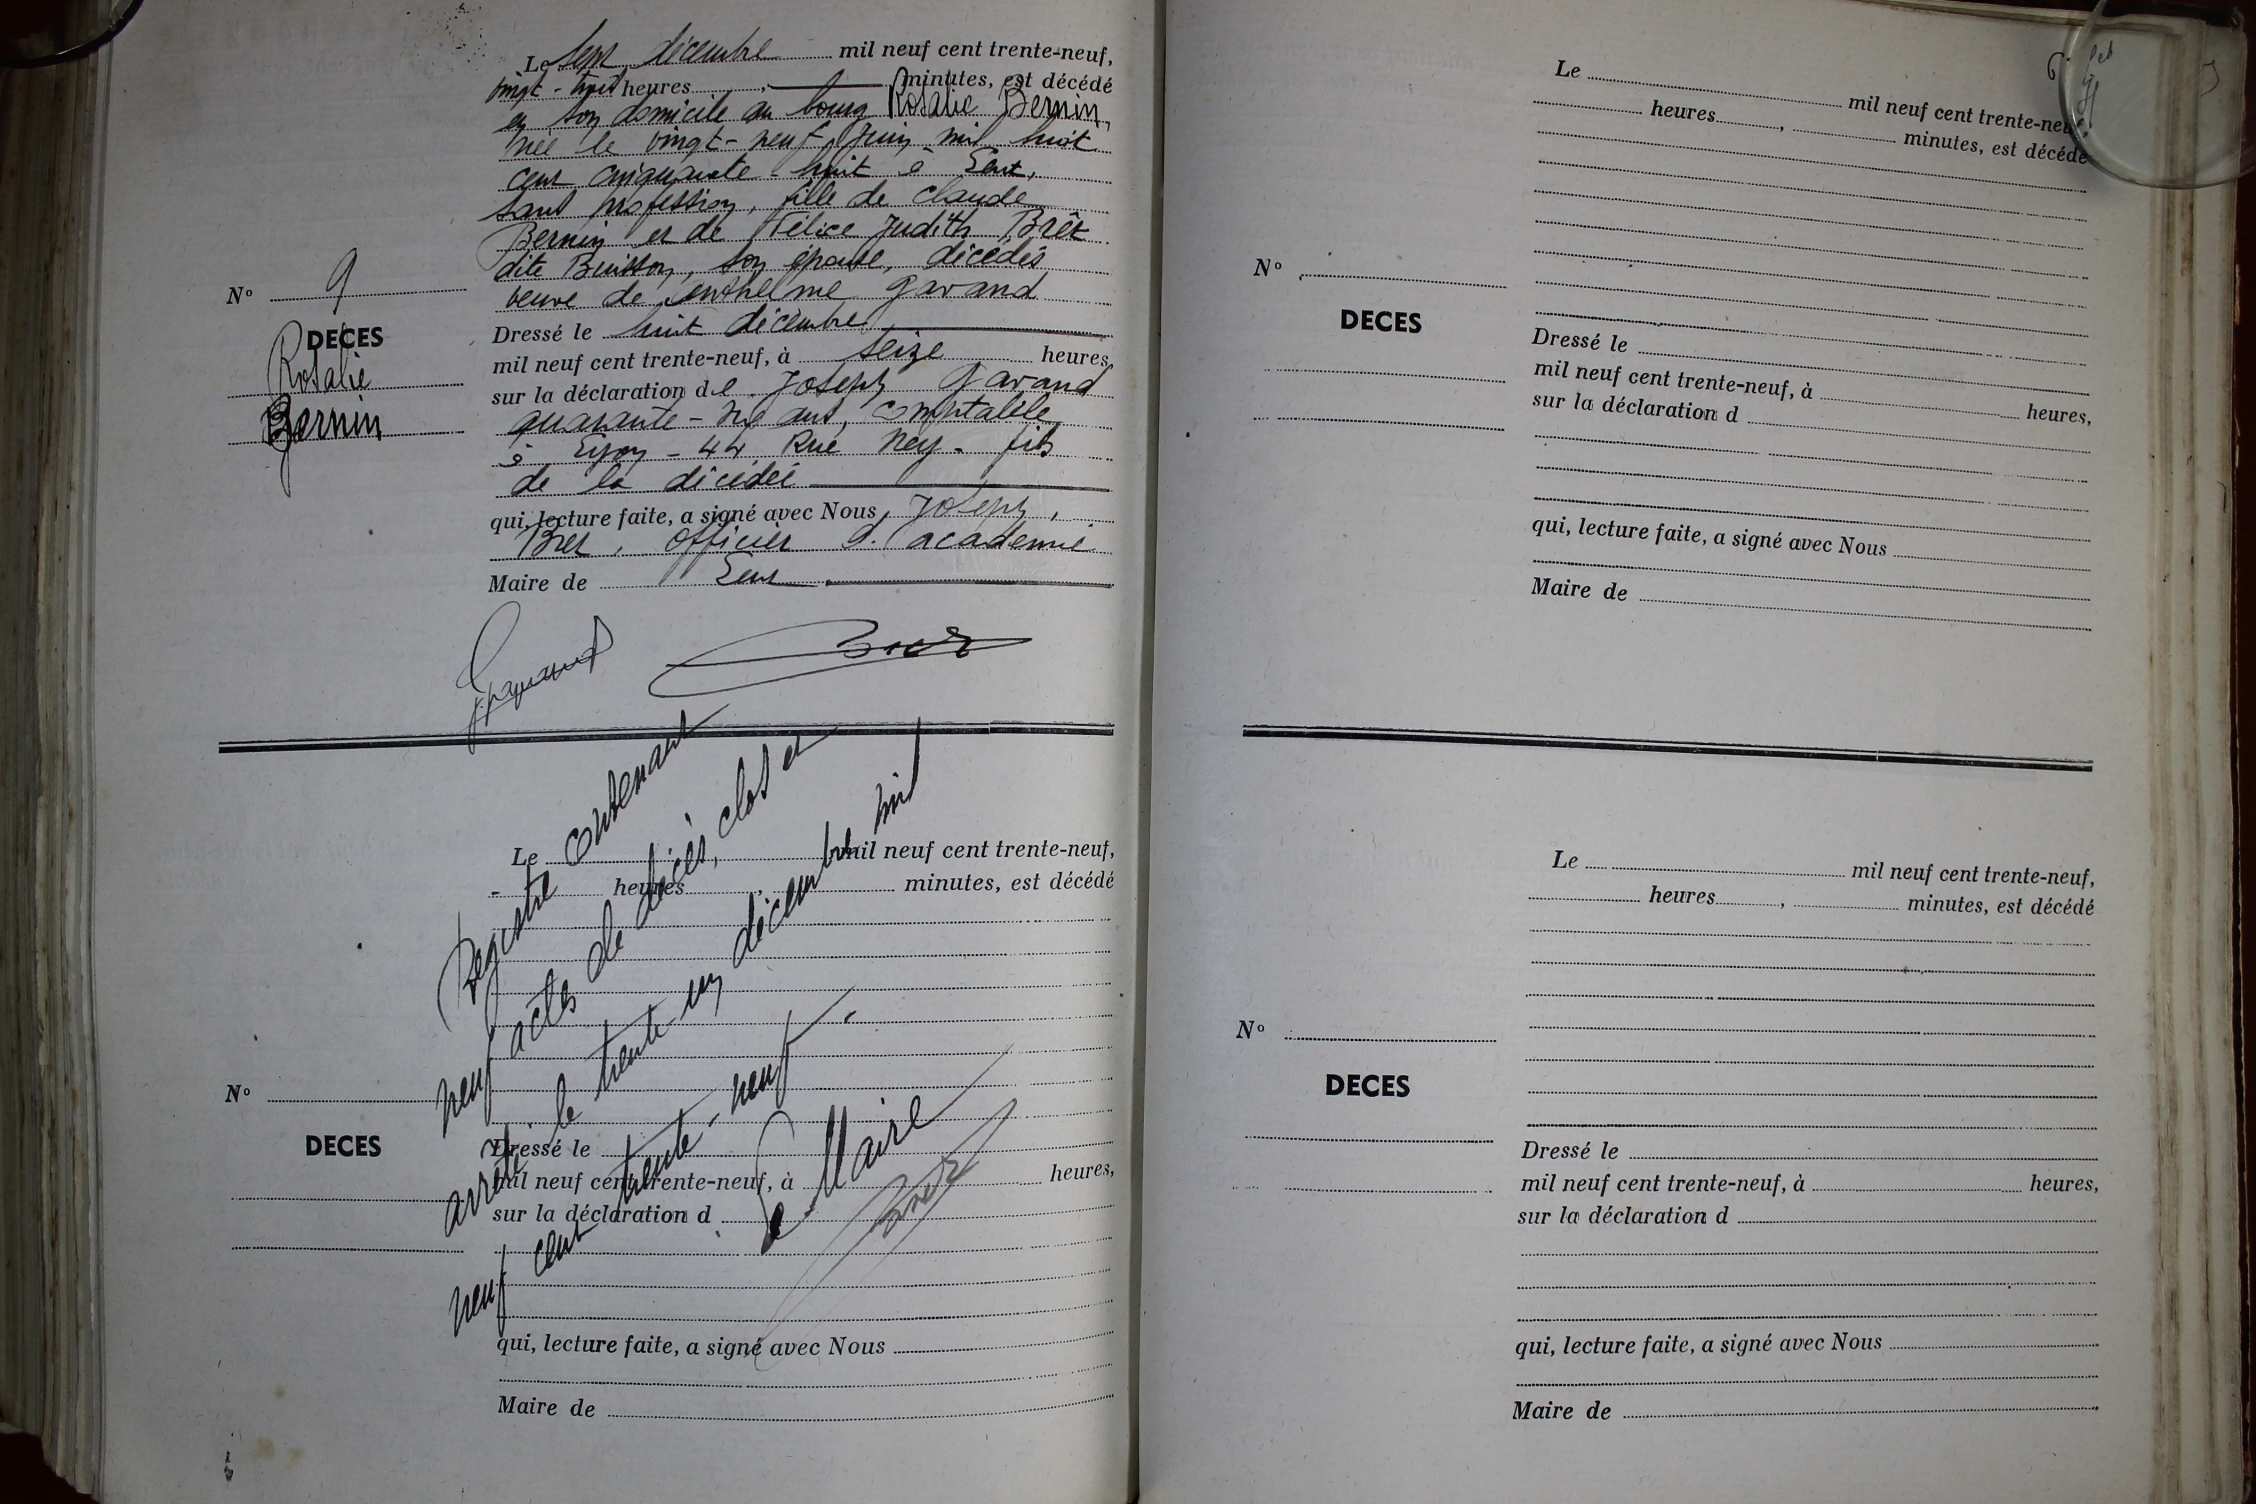 Le sept décembre mil neuf cent trente-neuf,
vingt-trois heures, minutes, est décédé
en son domicile au bourg Rosalie Bernin,
née le vingt-neuf juin mil huit
cent cinquante-huit à
sans profession, fille de Claude
Bernin et de Félice Judith Brêt
dite Buisson, son épouse, décédés
veuve de Anthelme Garand
Nº 9
DECES
Rosalie
Bernin
Dressé le huit décembre
mil neuf cent trente-neuf, à seize heures,
sur la déclaration de Joseph Garand
quarante-six ans, comptable
à Lyon - 44 Rue Ney - fils
de la décédée
qui, lecture faite, a signé avec Nous, Joseph,
Bret, officier d'académie
Maire de
Garand Bret
Registre contenant
neuf actes de décès, clos et
arrêté le trente-un décembre mil
neuf cent trente-neuf.
Le Maire
Bret
Le mil neuf cent trente-neuf,
heures, minutes, est décédé
Nº
DECES
Dressé le
mil neuf cent trente-neuf, à heures,
sur la déclaration d
qui, lecture faite, a signé avec Nous
Maire de
Le mil neuf cent trente-neuf,
heures, minutes, est décédé
Nº
DECES
Dressé le
mil neuf cent trente-neuf, à heures,
sur la déclaration d
qui, lecture faite, a signé avec Nous
Maire de
Le mil neuf cent trente-neuf,
heures, minutes, est décédé
Nº
DECES
Dressé le
mil neuf cent trente-neuf, à heures,
sur la déclaration d
qui, lecture faite, a signé avec Nous
Maire de